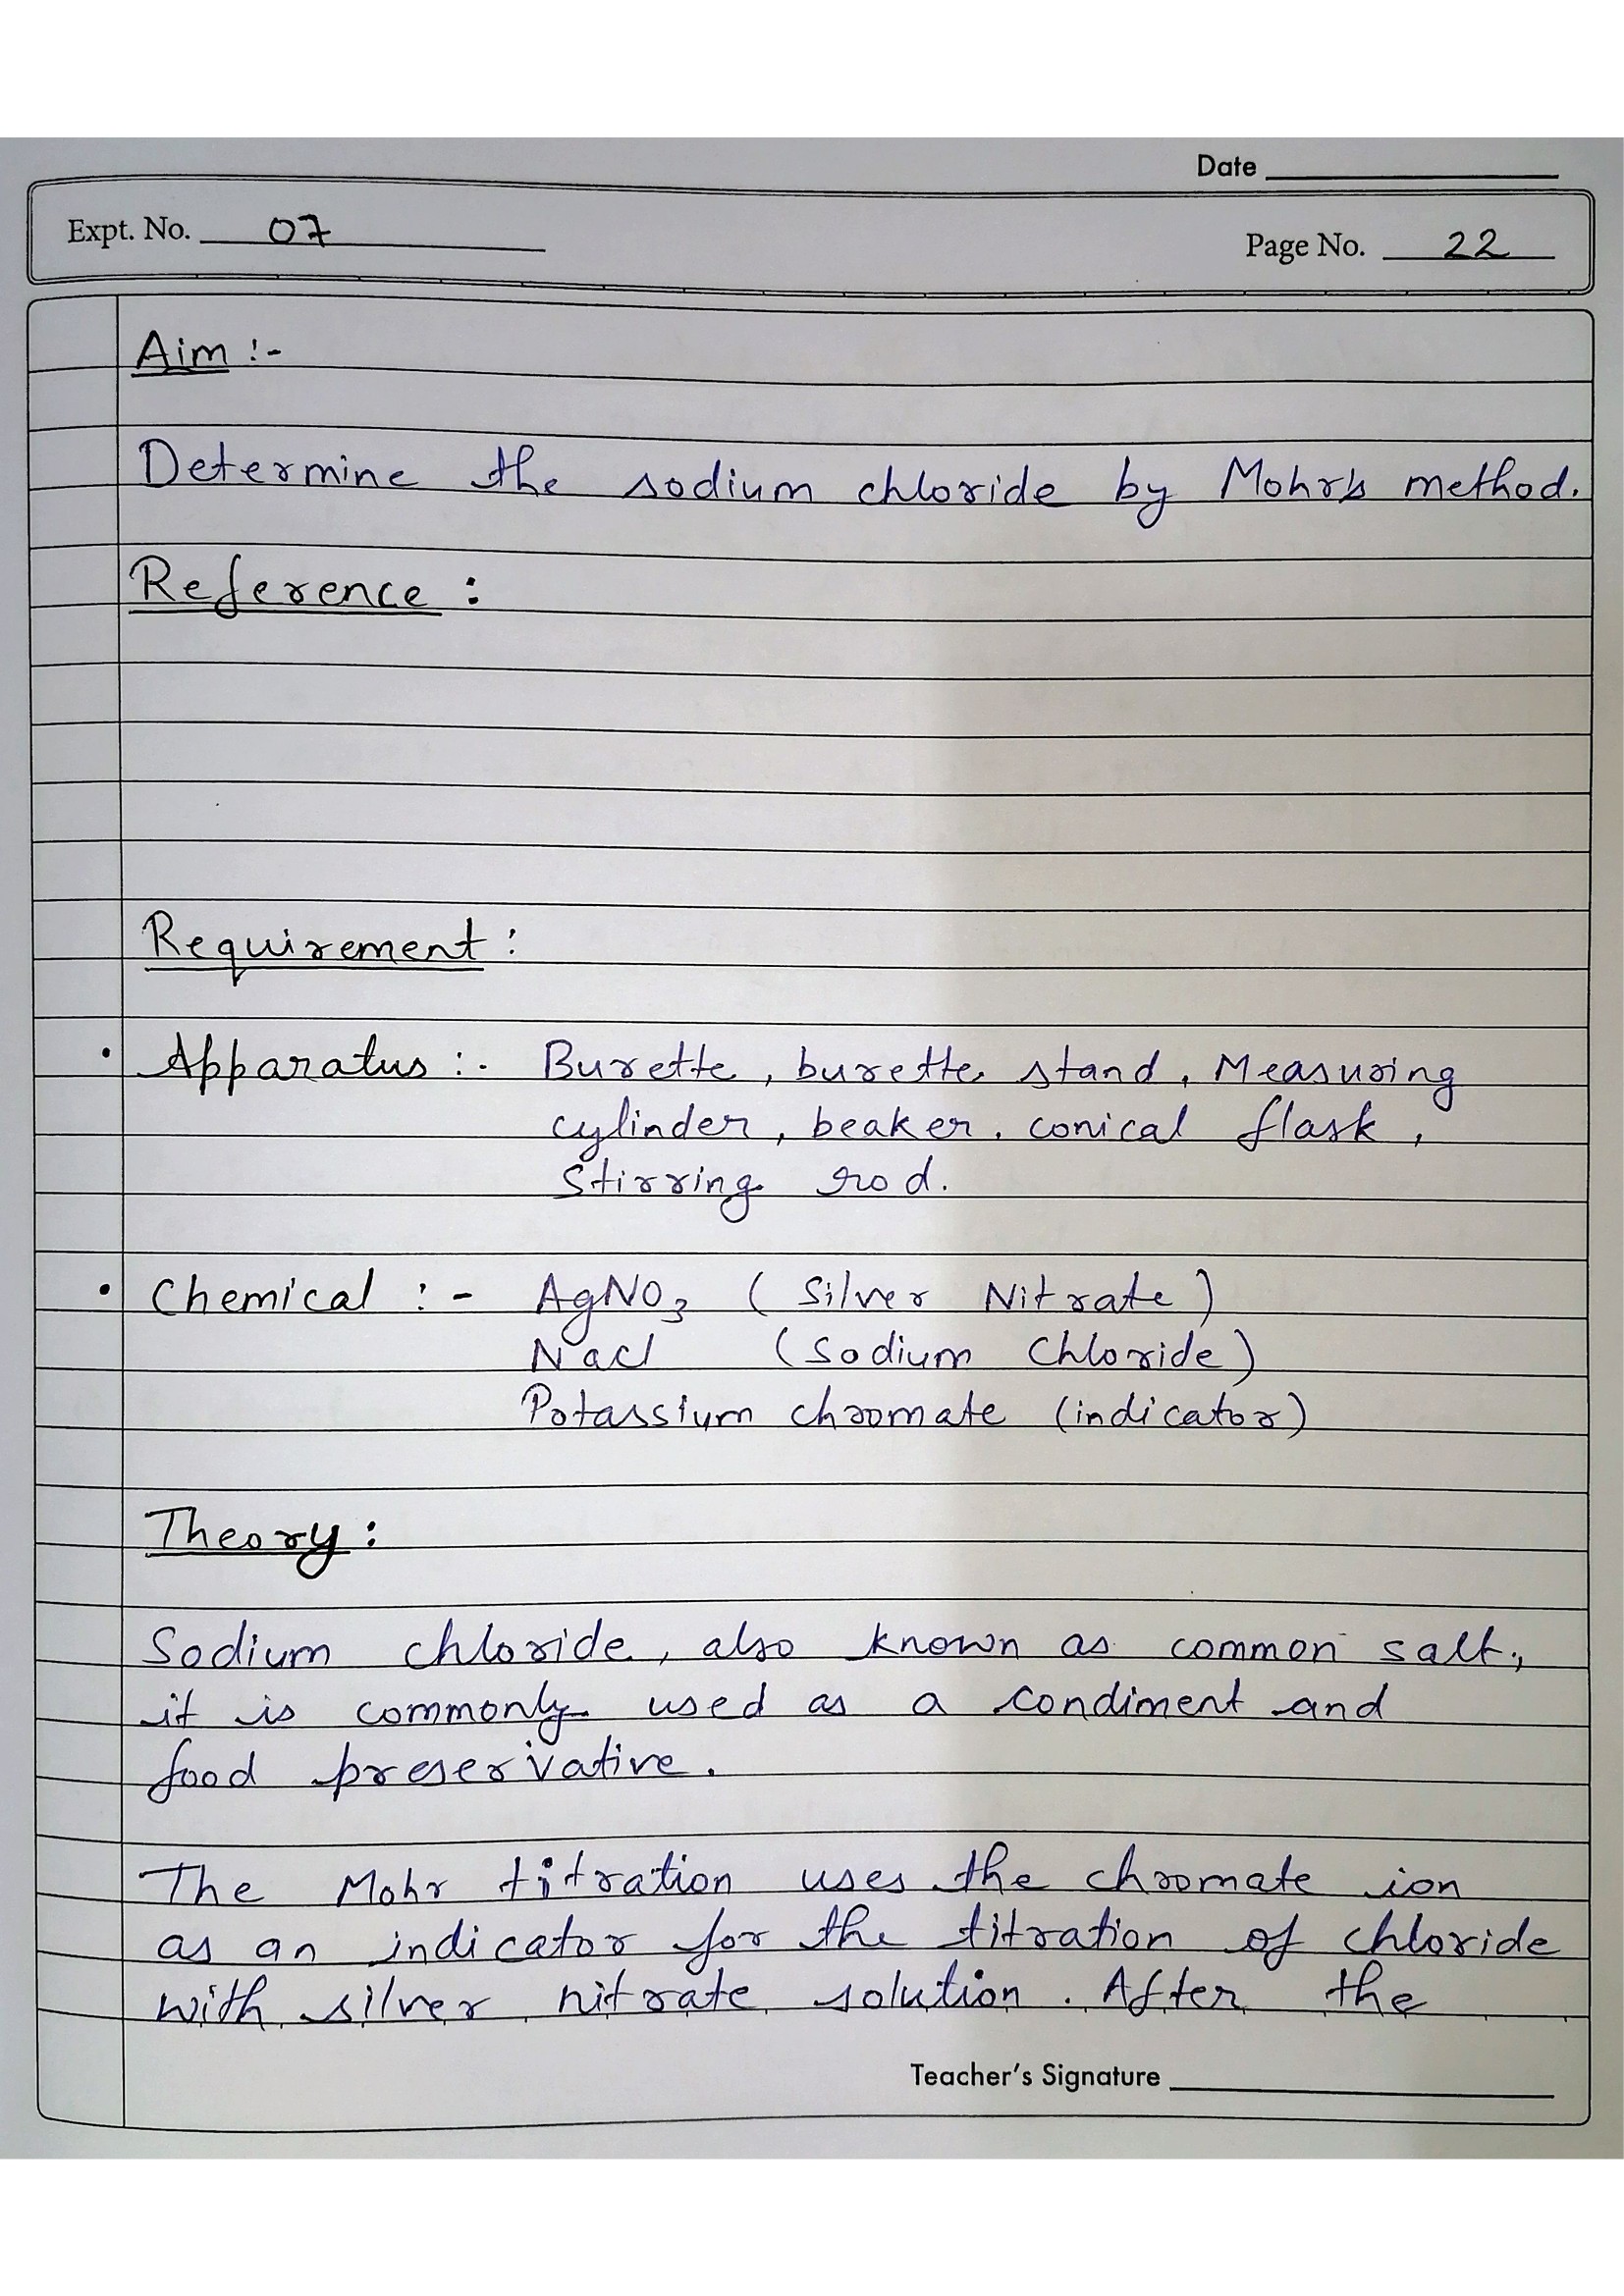 Date
Expt. No. 07
Page No. 22
Aim :-
Determine the sodium chloride by Mohr's method.
Reference :
Requirement :
• Apparatus :- Burette, burette stand, Measuring
cylinder, beaker, conical flask,
Stirring rod.
• Chemical :- AgNO3 ( Silver Nitrate )
Nacl (Sodium Chloride)
Potassium chromate (indicator)
Theory :
Sodium chloride, also known as common salt,
it is commonly used as a condiment and
food preservative.
The Mohr titration uses the chromate ion
as an indicator for the titration of chloride
with silver nitrate solution. After the
Teacher's Signature